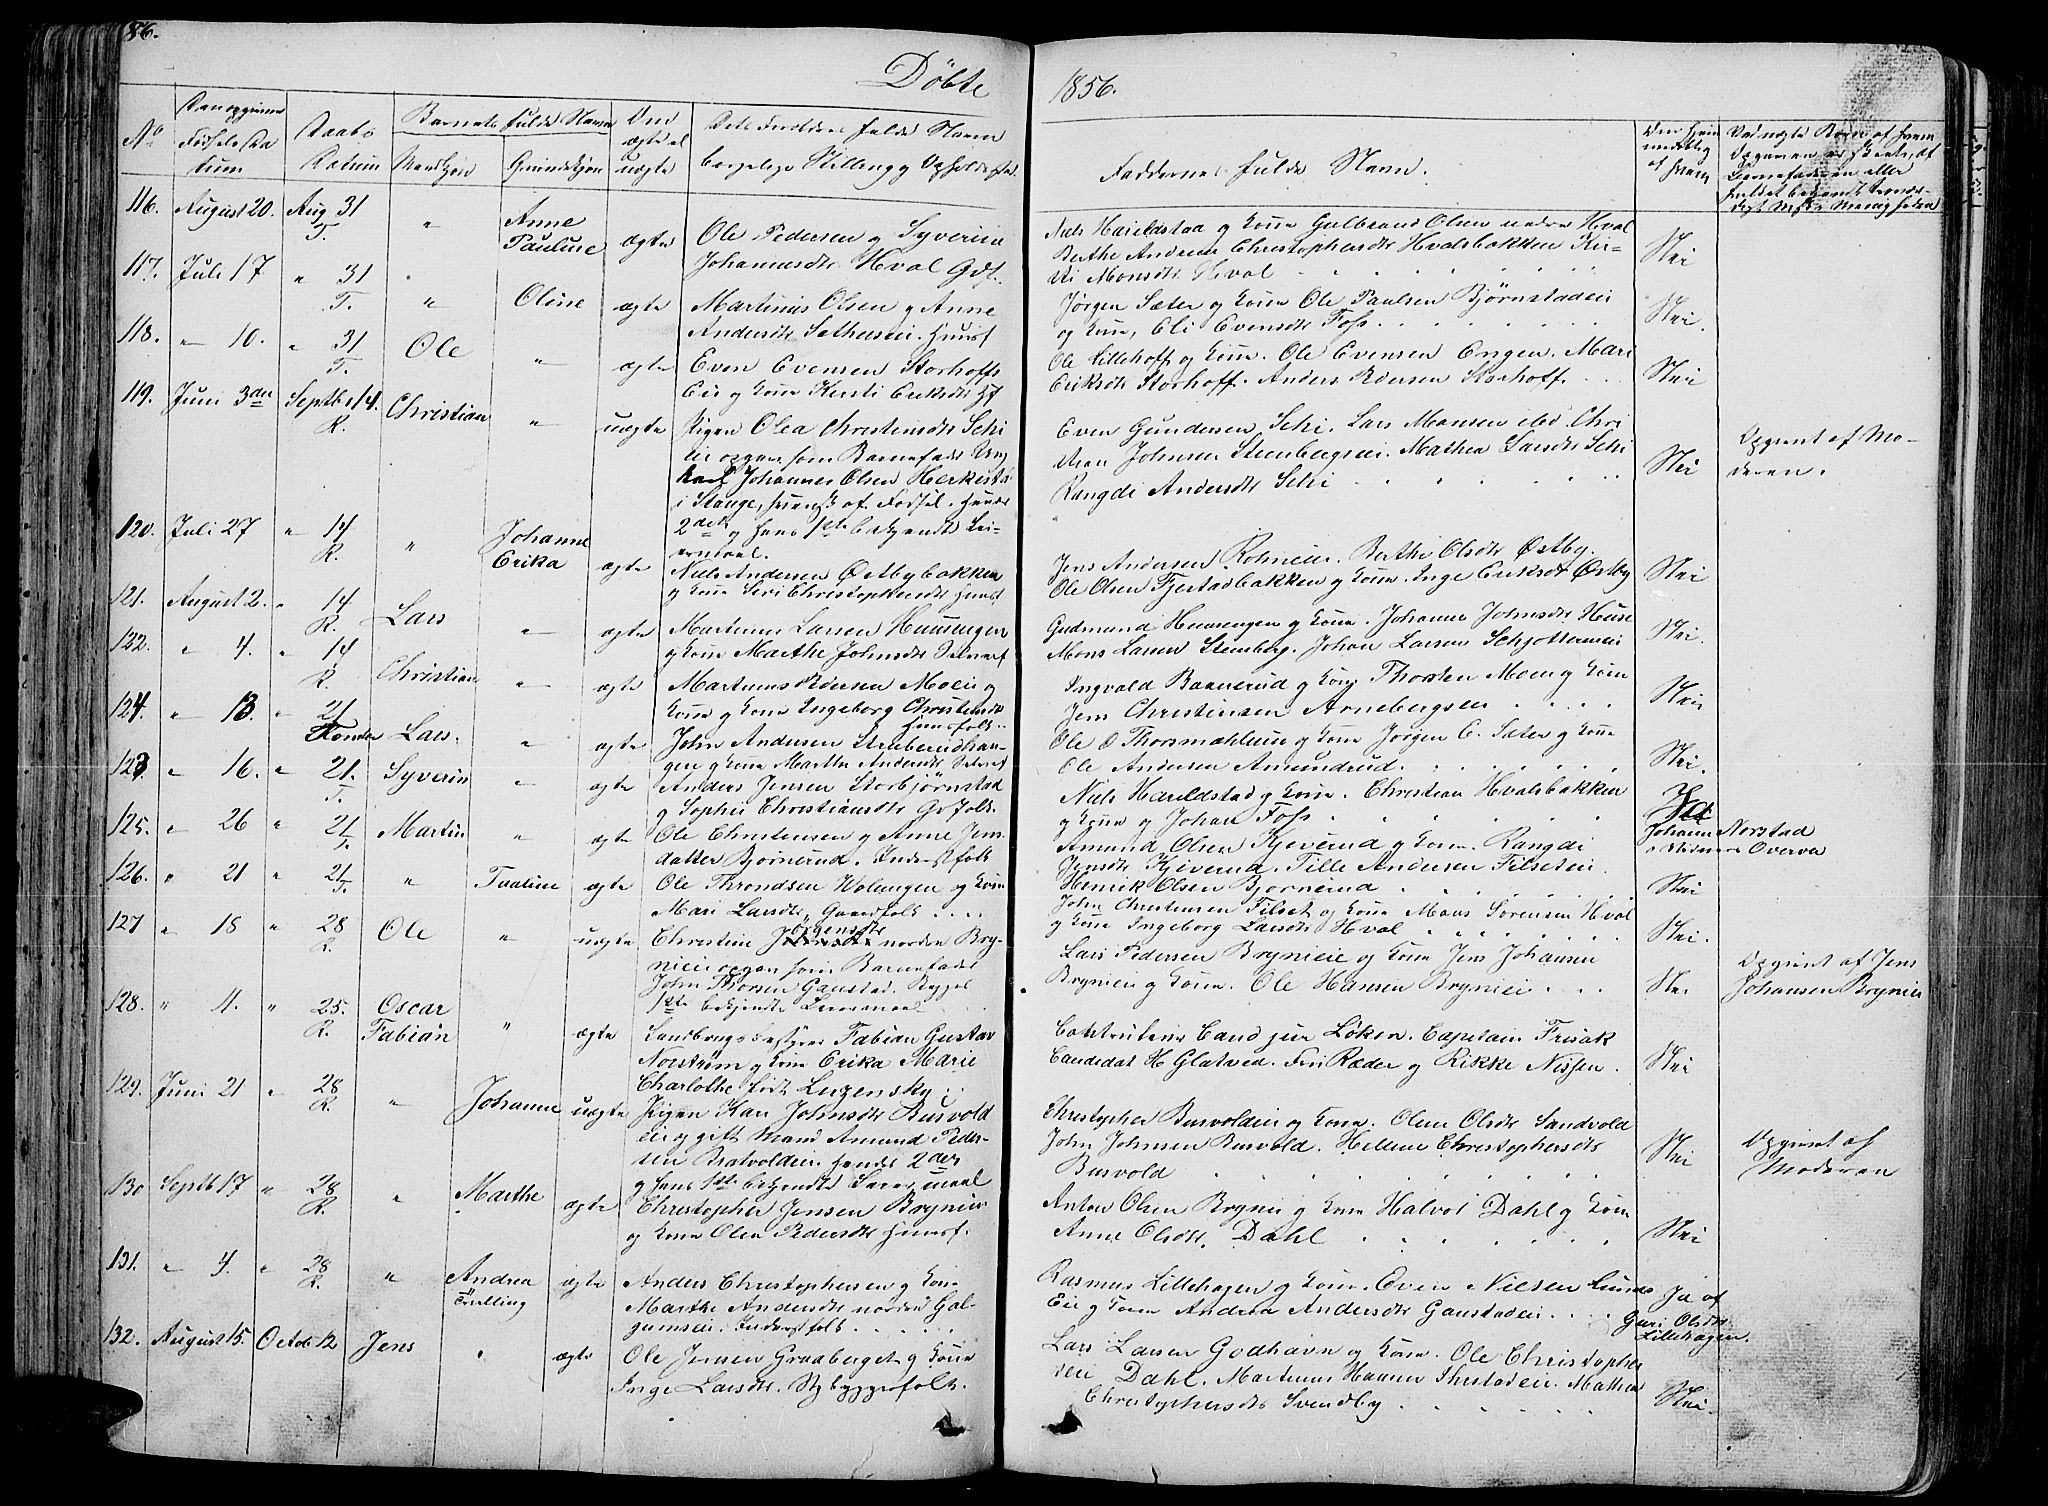 86.
Döbte
1856.
No
Daabs
Datum
Barnets fulde Navn
Mandkjøn
Qvindekjøn
Om
ægte el
uægte
Faddernes fulde Navn.
116. August 20. Aug 31 T. " Anne Pauline ægte Ole Pedersen g Syverine
Johannesdtr Hval Gdf.
Niels Harildstad g Kone Gulbrand Olsen nedre Hval
Berthe Andrea Christophersdtr Hvalsbakken Kir-
sti Monsdtr Hval
Nei
117. Juli 17 " 31 T. " Oline ægte Martinus Olsen g Anne
Andersdtr Sethereie. Huusf
Jørgen Sæter g Kone Ole Paulsen Bjørnstadeie
og Kone, Eli Evensdtr Foss.
Nei.
118. " 10. " 31 T. Ole " ægte Even Evensen Storhoffs
Eie g Kone Kersti Eriksdtr Hf
Ole Lillehoff g Kone. Ole Evensen Engen. Mari
Eriksdtr Storhoff. Anders Pedersen Storhoff.
Nei
119. Juni 3die Septbr 14. R. Christian " uægte Pigen Olea Christensdtr
Johannes Olsen
i Stange,
2det g hans 1ste bekjendte Lei-
ermaal.
Even Gundersen Lars Monsen ibid. Chri
stian Johnsen Steenbergseie. Mathea Larsdtr
Rangdi Andersdtr
Nei
Opgivet af Mo-
deren.
120. Juli 27 " 14 R. " Johanne Erika ægte Niels Andersen Østbybakken
g Kone Siri Christophersdtr Huusf
Jens Andersen Berthe Olsdtr Østby.
Ole Olsen Fjestadbakken g Kone. Inge Eriksdtr Østby
Nei
121. August 2. " 14 R. Lars " ægte Martinus Larsen Huusengen
g Kone Marthe Johnsdtr
Gudmund Huusengen g Kone. Johanne Johnsdtr Huse
Mons Larsen Steenberg. Johan Larsen
Nei.
122. " 4. " 14 R. Christian " ægte Martinus Pedersen Moeie g
Kone Ingeborg Christensdtr
Huusfolk.
Ingvald Baanerud g Kone Thorsten Moen g Kone
Jens Christensen Arnebergseie
Nei
124. " 13. " 21 Lars. " ægte John Andersen
gen g Kone Marthe Andersdtr
Ole O Thorsmæhlens g Kone Jørgen C. Sæter g Kone
Ole Andersen Amundrud.
Nei.
123. " 16. " 21. T. Syverin " ægte Anders Jensen Storbjørnstad
g Sophie Christiansdtr Gdfolk.
Niels Harildstad g Kone. Christian Hvalsbakken
g Kone g Johan Foss
Ja
Johann Norstad
Overva
125. " 26 " 21 T. Martin " ægte Ole Christensen g Anne Jens-
datter Bjørnerud. Inderstfolk
Amund Olsen Kjeverud g Kone. Rangdi
Jensdtr Kjeverud. Tille Andersen Filseteie.
Henrik Olsen Bjørnerud
Nei
126. " 21 " 21 T. " Pauline ægte Ole Throndsen Wolungen g Kone
Mari Larsdtr, Gaardfolk
John Christensen Filset g Kone Mons Sørensen Hval
g Kone Ingeborg Larsdtr Hval
Nei.
127 " 18 " 28 R. Ole " uægte Christine Jørgensdtr nordre Bry-
nieie opgav som Barnefader
John Thorsen Gaustad.
1ste bekjendte Leiermaal
Lars Pedersen Brynieie g Kone Jens Johansen
Brynieie g Kone. Ole Hansen Brynieie
Nei.
Opgivet af Jens
Johansen Brynieie
128. " 4. " 25. R. Oscar Fabian " ægte Landbrugsbestyrer Fabian Gustav
Norstrøm g Kone Erika Marie
Charlothe født
Cand jur Løken. Capitain Frisak
Candidat H Glatved. Frk Ræder g Rikke Nissen.
Nei
129. Juni 21 " 28 R. " Johanne uægte Pigen Kari Johnsdtr Busvold
eie g gift Mand Amund Peder-
sen Bratvoldeie. Hendes 2det
g hans 1ste bekjendte Leiermaal
Christopher Busvoldeie g Kone. Oline Olsdtr Sandvold
John Johnsen Busvold. Hellene Christophersdtr
Busvold
Nei
Opgivet af
Moderen
130 Septb 17 " 28 R. " Marthe ægte Christopher Jensen Brynieie
og Kone Olea Pedersdtr Huusf.
Anton Olsen Brynie g Kone Halvor Dahl g Kone
Anne Olsdtr. Dahl
Nei
131. " 4. " 28 R. " Andrea Tvilling ægte Anders Christophersen g Kone
Marthe Andersdtr nordre Gal-
gumseie. Inderstfolk
Rasmus Lillehagen g Kone. Even Nielsen Lunds
Eie g Kone Andrea Andersdtr Gaustadeie
Ja af
Guri Olsdtr
Lillehagen.
132. August 15. Octob 12 Jens " ægte Ole Jensen Graaberget g Kone
Inge Larsdtr. Nybyggerfolk.
Lars Larsen Godhavn g Kone. Ole Christopher
Dahl. Martinus Haanes Mathea
Christophersdtr Svendby
Nei.